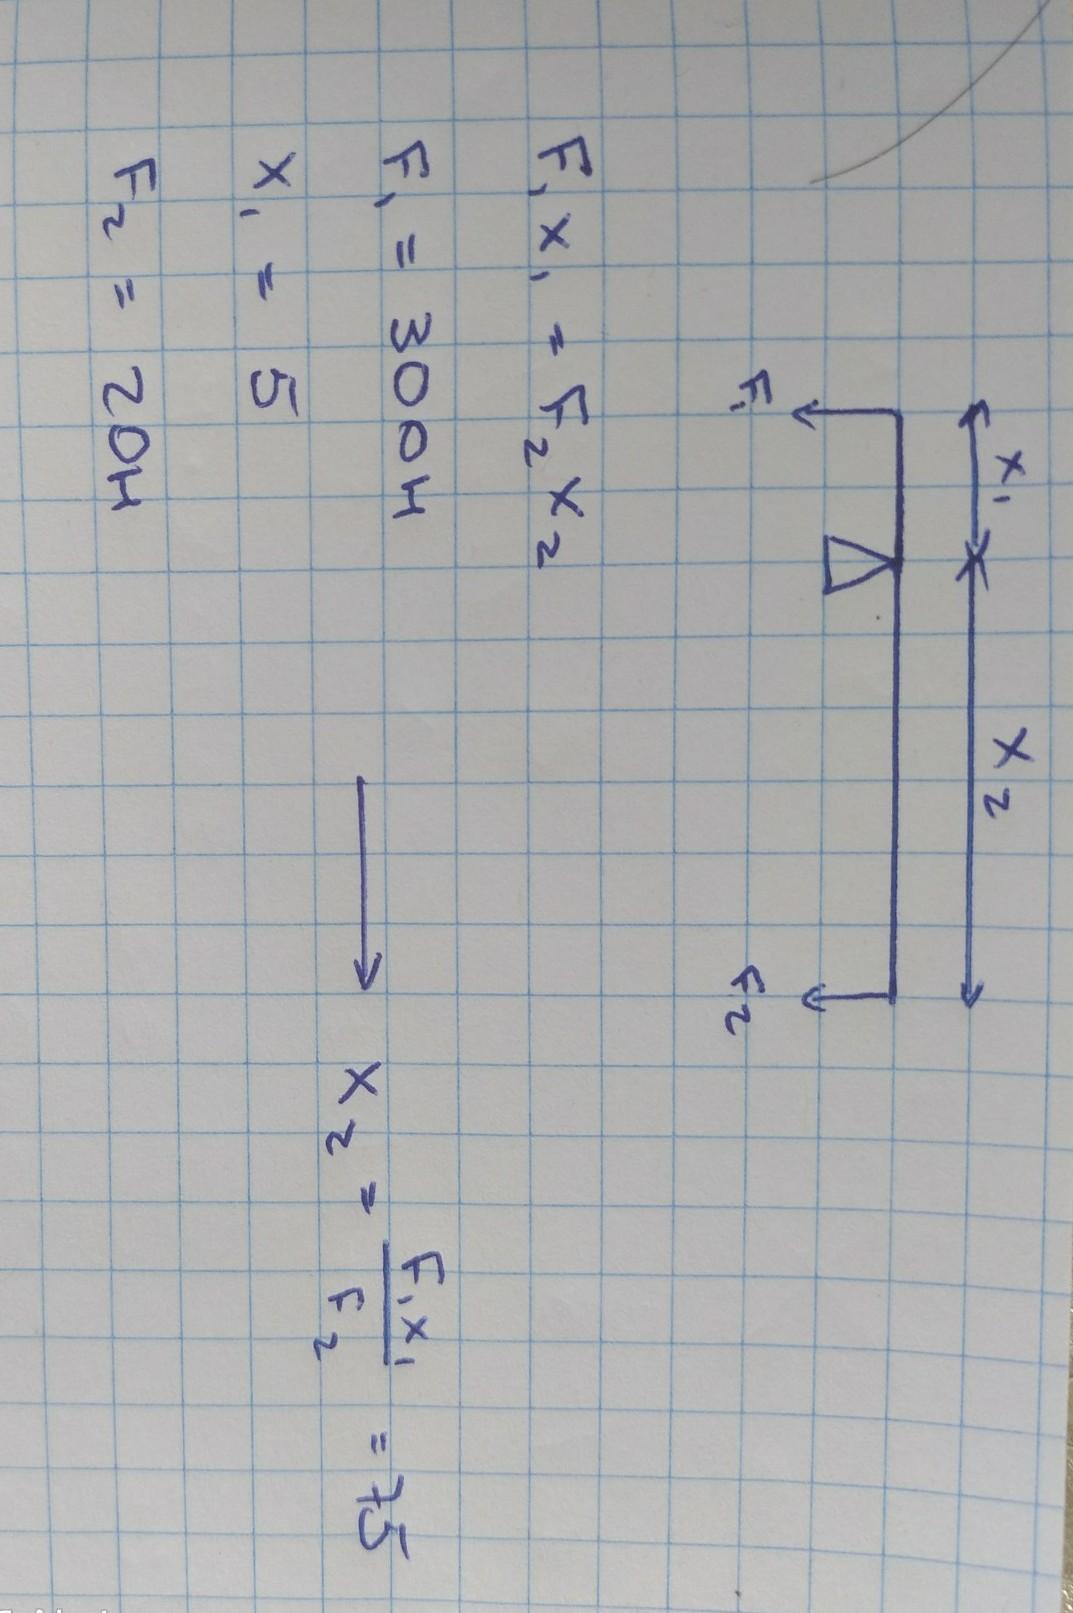 x₁ x₂
F₁ F₂
F₁x₁ = F₂x₂
F₁ = 300H
x₁ = 5
F₂ = 20H
x₂ = F₁x₁/F₂ = 75